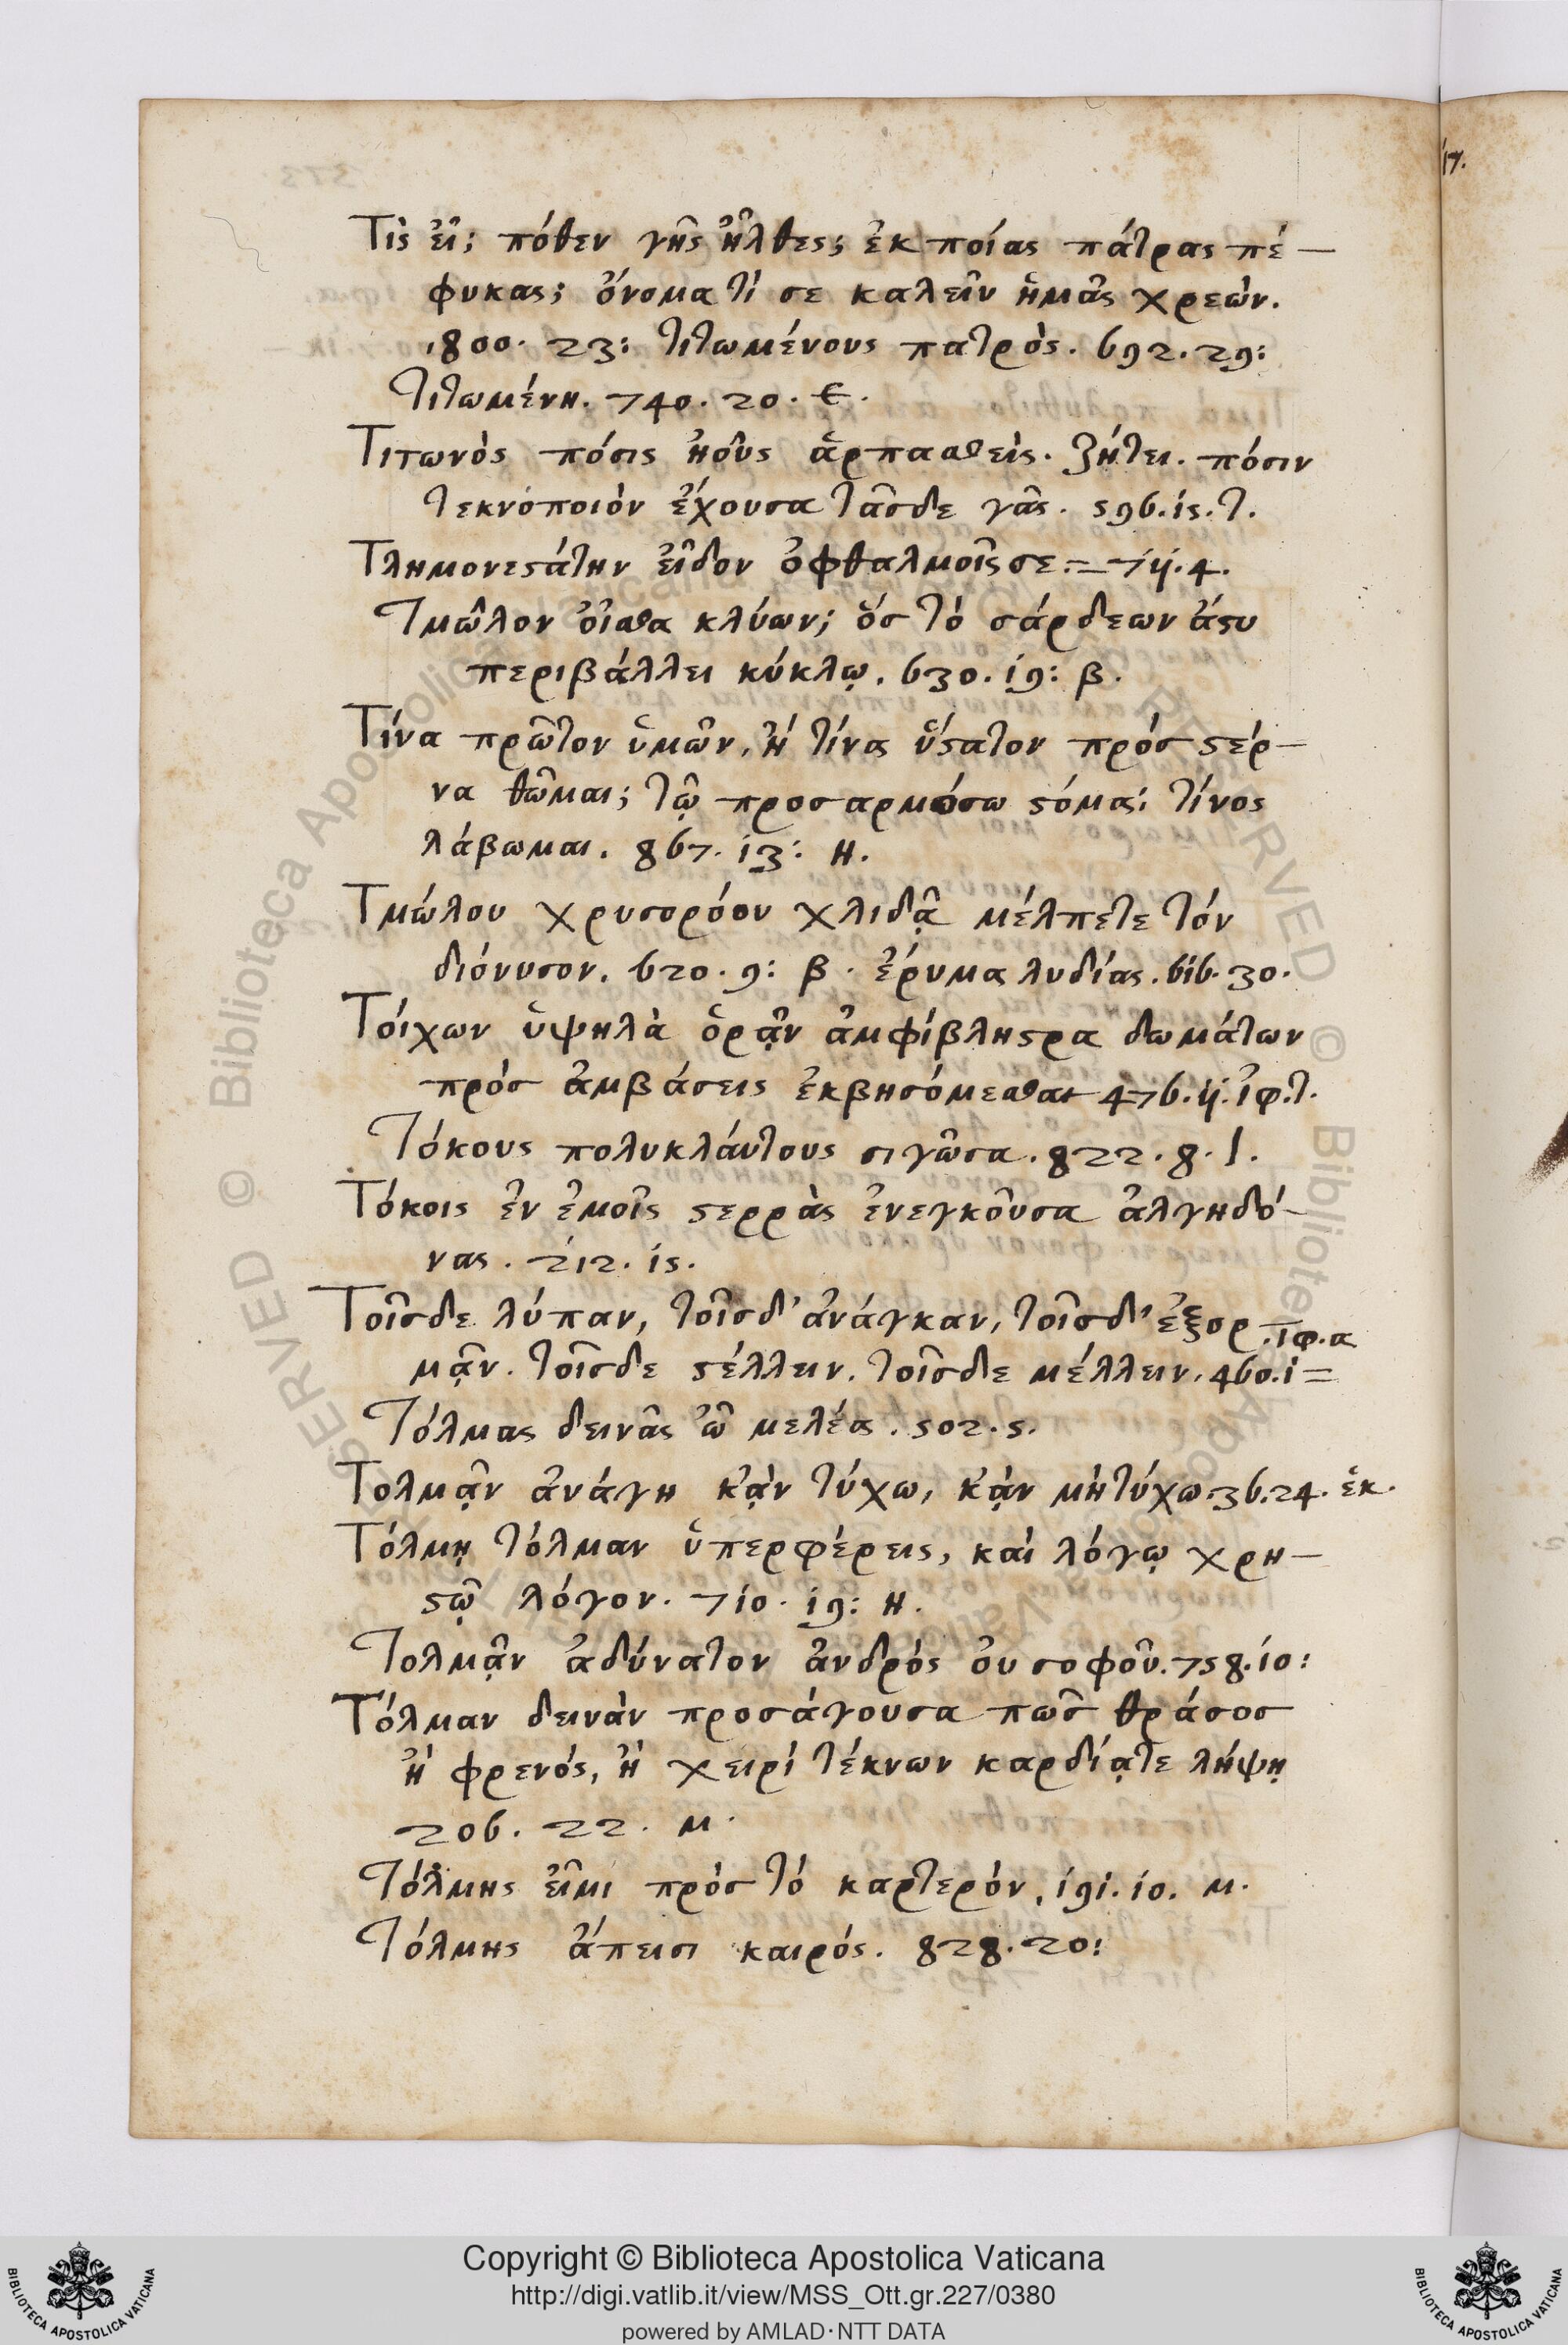 Τὶς εἶ; πόθεν γῆς ἦλθες; ἐκ ποίας πάτρας πέ—
φυκας; ὄνομα τί σε καλεῖν ἡμᾶς χρεών.
,800. 23: τιτωμένους πατρὸς. 692. 29:
Τιτωμένη. 740. 20. ε.
Τιτωνὸς πόσις ἠοῦς ἁρπασθεὶς. ζήτει. πόσιν
τεκνόποιὸν ἔχουσα τᾶσδε γᾶς. 596. 15. τ.
Τλημονεστάτην εἶδον ὀφθαλμοῖς σε. = 711. 4.
Τμῶλον οἶσθα κλύων; ὅς τὸ σάρδεων ἄστυ
περιβάλλει κύκλῳ. 630. 19: β.
Τίνα πρῶτον ὑμῶν, ἢ τίνα ὕστατον πρὸς στέρ—
να θῶμαι; τῷ προσαρμόσω στόμα; τίνος
λάβωμαι. 867. 13: Η.
Τμώλου χρυσορόου χλιδᾷ μέλπετε τόν
διόνυσον. 620. 9: β. ἔρυμα λυδίας. 616. 30.
Τοίχων ὑψηλὰ ὁρᾷν ἀμφίβληστρα δωμάτων
πρὸς ἀμβάσεις ἐκβησόμεσθα 476. 11. ἰφ. τ.
Τόκους πολυκλάυτους σιγῶσα. 822. 8. Ι.
Τόκοις ἐν ἐμοῖς στερρὰς ἐνεγκοῦσα ἀλγηδό—
νας. 212. 15.
Τοῖσδε λύπαν, τοῖσδ' ἀνάγκαν, τοῖσδ' ἐξορ. ἰφ. α
μᾷν. τοῖσδε στέλλειν. τοῖσδε μέλλειν. 460. 1 =
Τόλμας δεινᾶς ὦ μελέα. 502. 5.
Τολμᾷν ἀνάγη κᾂν τύχω, κᾂν μὴ τύχω. 36. 24. ἑκ.
Τόλμῃ τόλμαν ὑπερφέρεις, καὶ λόγῳ χρη—
στῷ λόγον. 710. 19: Η.
Τολμᾷν ἀδύνατον ἀνδρὸς οὐ σοφοῦ. 758. 10:
Τόλμαν δεινὰν προσάγουσα πῶς θράσος
ἢ φρενός, ἢ χειρί τέκνων καρδίᾳτε λήψῃ
206. 22. μ.
Τόλμης εἶμι πρὸς τό καρτερόν, 191. 10. μ.
Τόλμης ἄπεισι καιρός. 828. 20:
17.
Copyright © Biblioteca Apostolica Vaticana
http://digi.vatlib.it/view/MSS_Ott.gr.227/0380
powered by AMLAD·NTT DATA
BIBLIOTECA APOSTOLICA VATICANA
BIBLIOTECA APOSTOLICA VATICANA